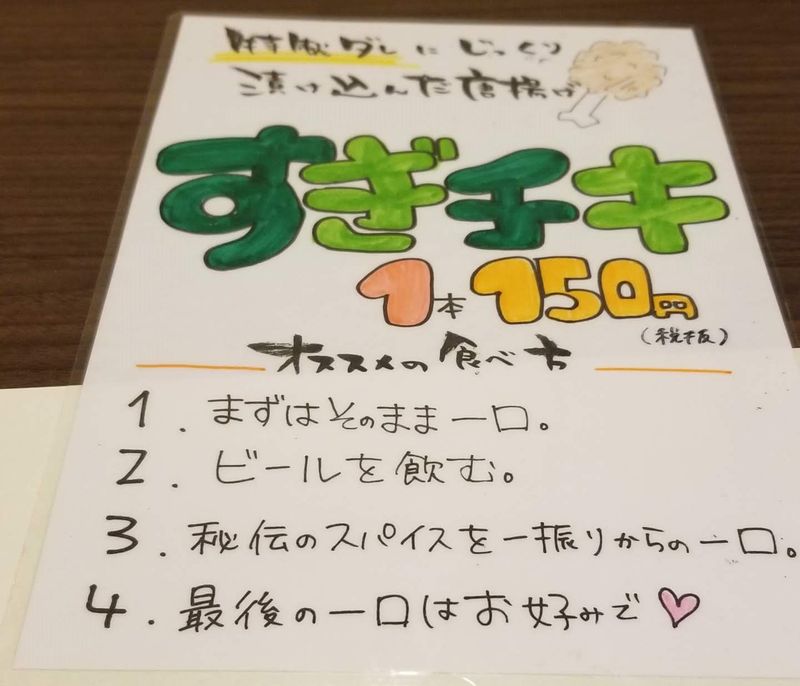 特製ダレにじっくり
漬け込んだ唐揚げ
すぎチキ
1本150円
(税抜)
オススメの食べ方
1.まずはそのまま一口。
2.ビールを飲む。
3.秘伝のスパイスを一振りからの一口。
4.最後の一口はお好みで♡